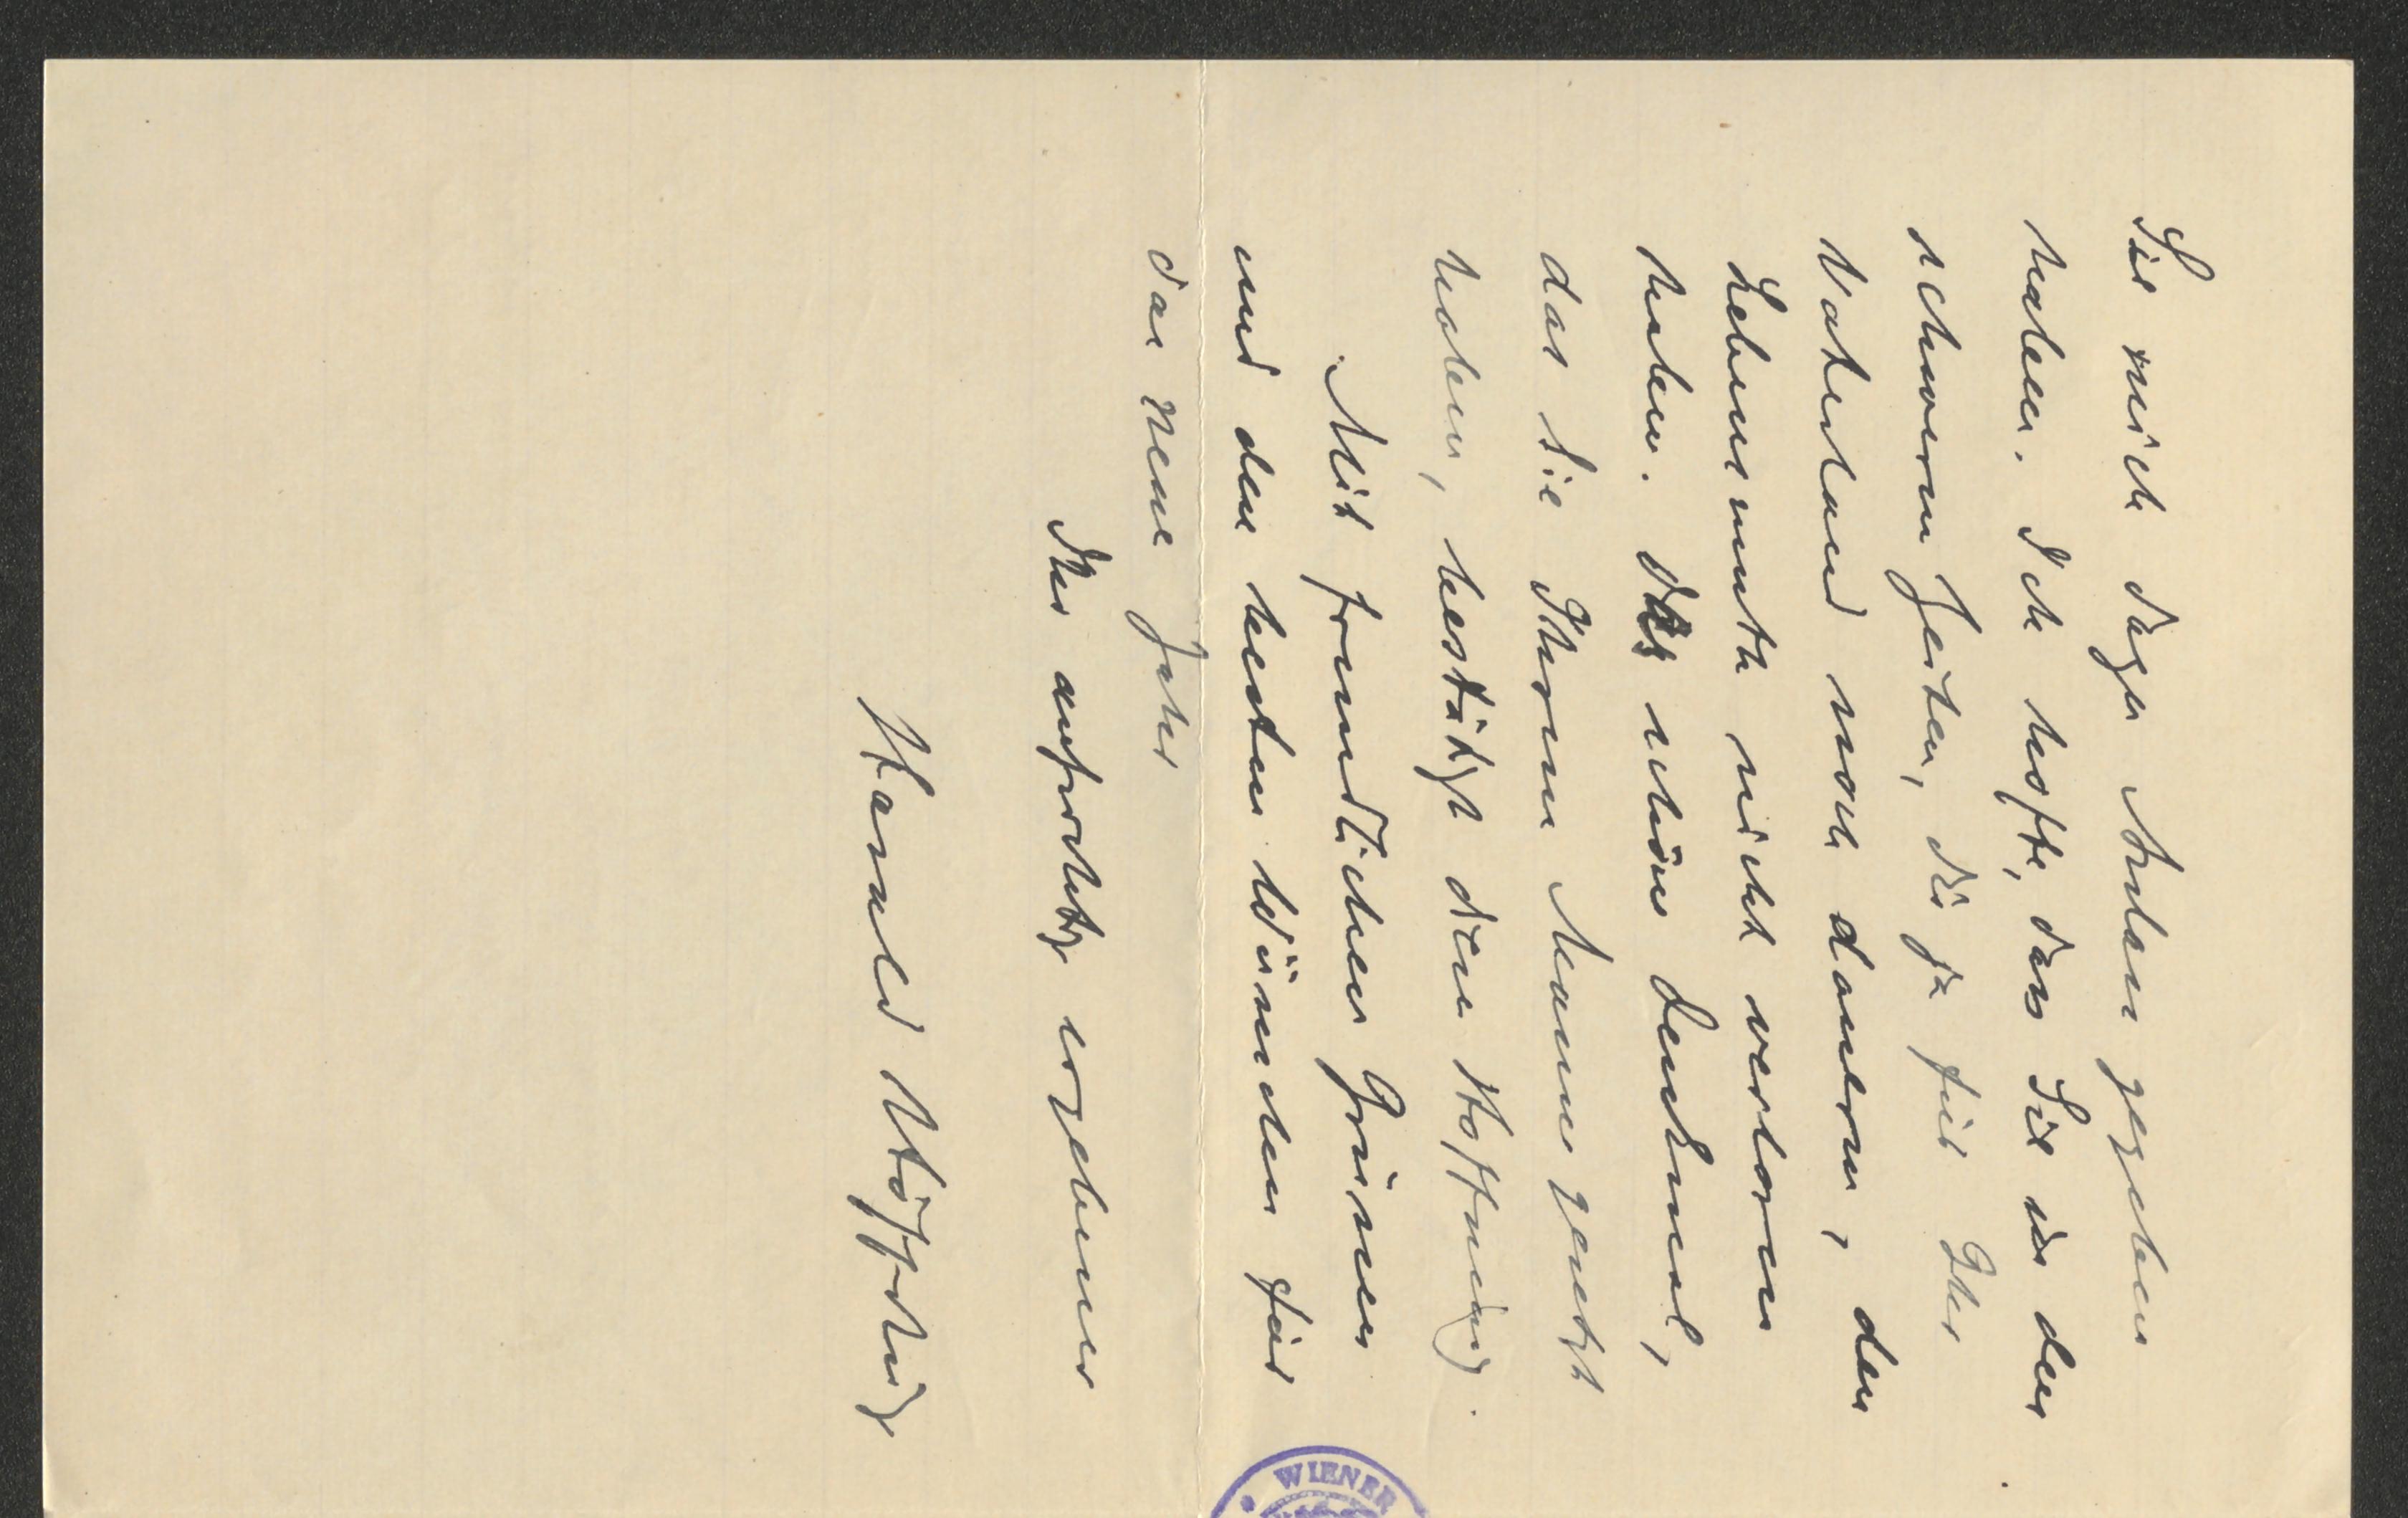 Sie mich dazu Anlass gegeben
haben. Ich hoffe, dass Sie in den
schweren Zeiten, die ja für Ihr
Vaterland noch dauern, den
Lebensmuth nicht verloren
haben. Das schöne Denkmal,
das Sie Ihrem Manne gesetzt
haben, bestätigt diese Hoffnung.
Mit freundlichen Grüssen
und den besten Wünschen für
das neue Jahr
Ihr aufrichtig ergebener
Harald Höffding
WIENER